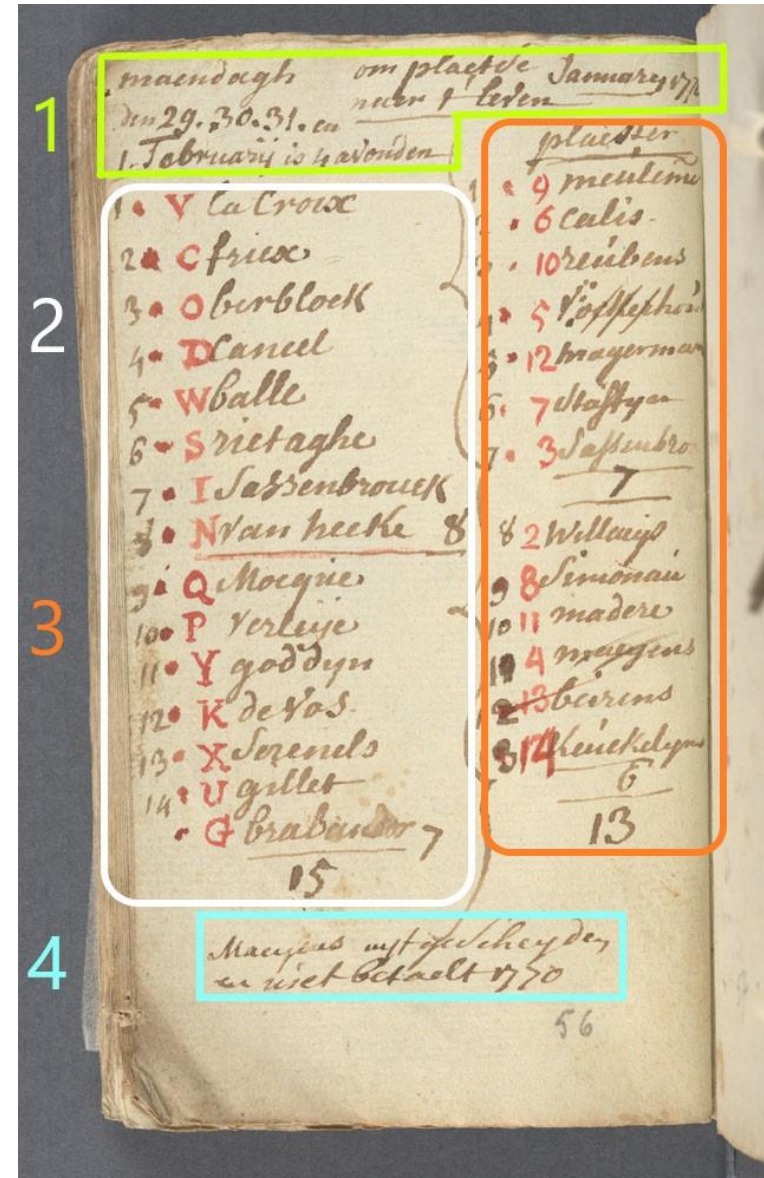 1
maendagh om plaetse January 1770
den 29. 30. 31. en naer t leven
1. February is 4 avonden
2
1 V la Croix
2 C friex
3 O berblock
4 D Cancel
5 W balle
6 S rietaghe
7 I Sassenbrouck
8 N van hecke 8
9 Q Mocque
10 P Verleije
11 Y goddyn
12 K de Vos
13 X Serenels
14 U gillet
G brabander 7
15
3
plaister
1 9 meuleme
2 6 calis
3 10 reübens
4 5
5 12 magerman
6 7 Staftyn
7 3 Sassenbro
7
8 2 Willaeys
9 8 Simonaü
10 11 madere
11 4 maegens
12 13 beirens
13 14 Keückelyn
6
13
4
Maegens uyt gescheyden
en niet betaelt 1770
56